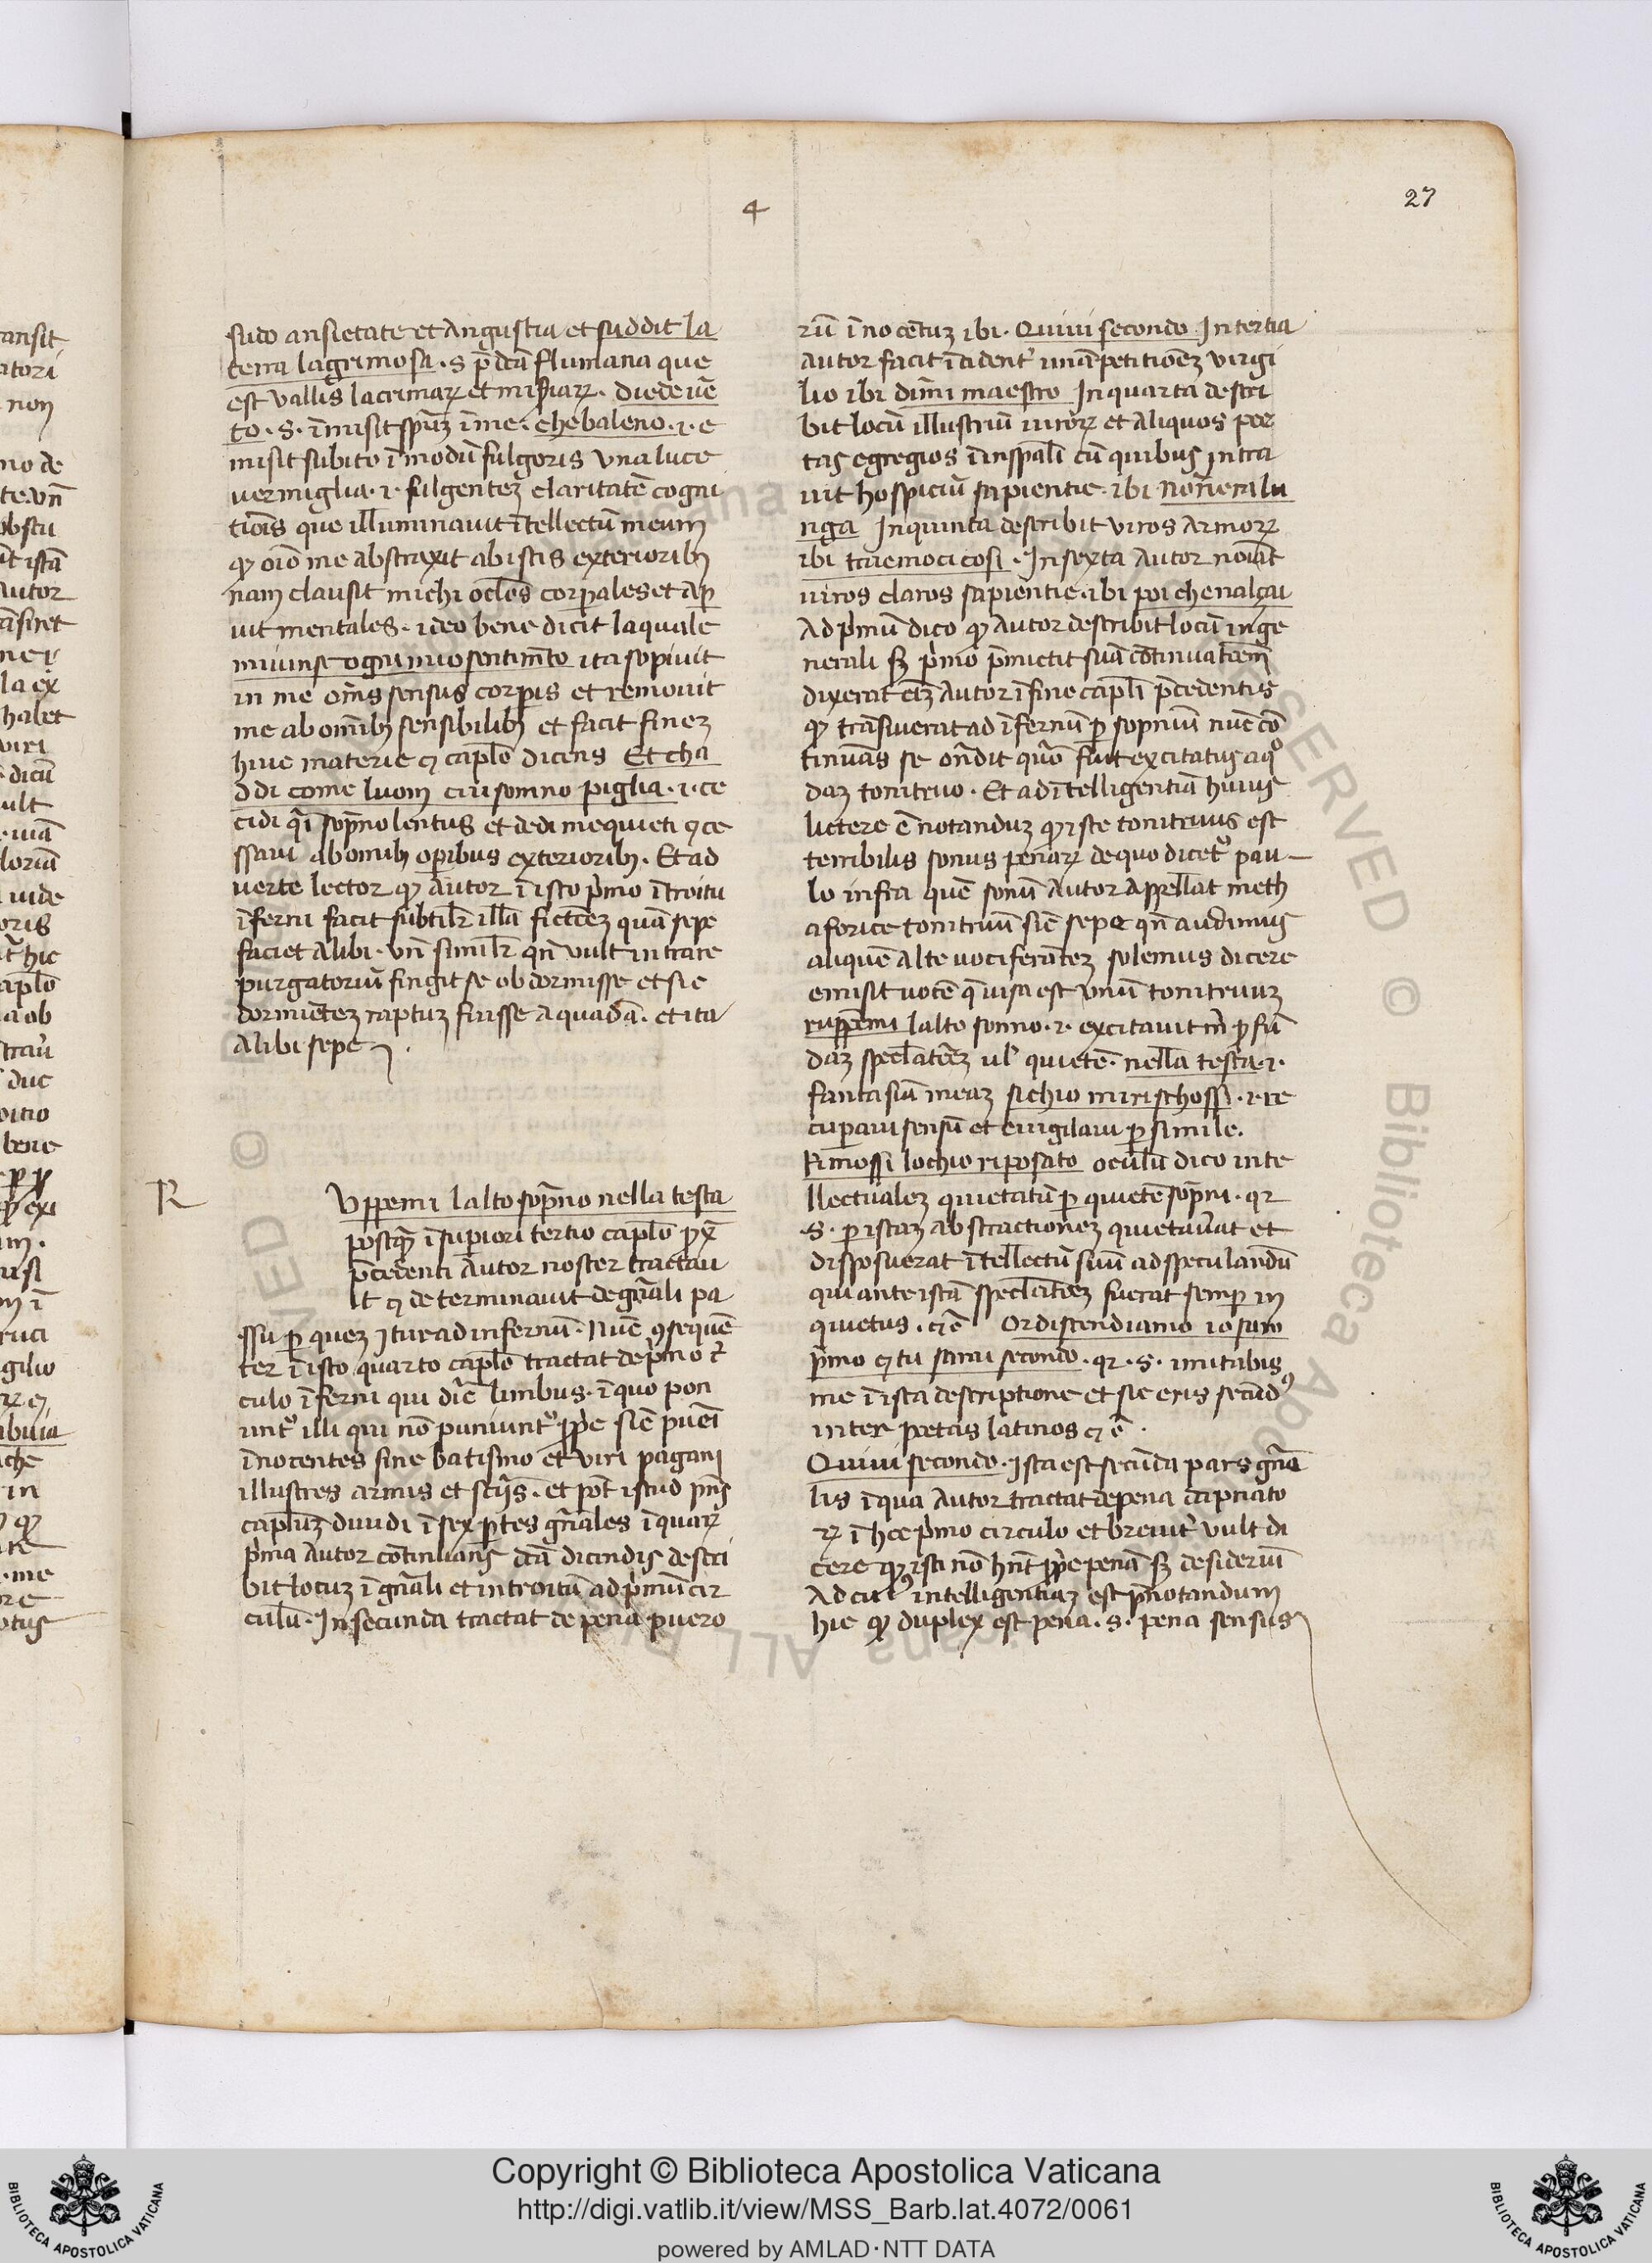 4
27
sudo ansietate et angustia et sud dit la
terra lagrimosa · s p̄dc̄a flumana que
est vallis lacrimaꝝ et mis̄iaꝝ · diede uē
to · s · īmisit spm̄ ī me · che baleno · i · e
misit subito ī modū fulgoris vna luce
vermiglia · i · fulgenteȝ claritatē cogni
tiōis que illuminauit ītellectū meum
ꝙ oīo me abstraxit ab istis exterioribꝫ
nam clausit michi oc̄los corꝑales et aꝑ
uit mentales · ideo bene dicit la quale
miuinse ogni mio sentimēto ita sopiuit
in me om̄s sensus corꝑis et remouit
me ab om̄ibꝫ sensibilibꝫ et facit fineȝ
huic materie ⁊ capl̄o dicens Et cha
ddi come luom cui somno piglia · i · ce
cidi q̄i sop̄nolentus et dedi me quieti ⁊ ce
ssaui ab om̄ibꝫ oꝑibus exterioribꝫ · Et ad
verte lector ꝙ autor ī isto p̍mo ītroitu
īferni facit subtilr̄ illā fictōeȝ quā sepe
faciet alibi · vn̄ similr̄ qn̄ vult intrare
purgatoriū fingit se ob dormisse et sic
dormiēteȝ raptuȝ fuisse a quadā · et ita
alibi sepe
R
Vppemi lalto sop̄no nella testa
postq̄ȝ ī suꝑiori tertio capl̄o ꝓx̄
p̄cedenti autor noster tractau
it ⁊ determinauit de gn̄ali pa
ssu ꝑ queȝ itur ad infernū · Nūc ꝯsequē
ter ī isto quarto capl̄o tractat de p̍mo cir̄
culo īferni qui dīc̄ limbus · ī quo pon
unt̄ illi qui nō puniunt̄ ꝓp̍e sic̄ pueī
īnocentes sine batismo et viri pagani
illustres armis et scīj̄s · et pōt istud pn̄s
capl̄uȝ diuidi ī sex ꝑtes gn̄ales ī quaꝝ
p̍ma autor cōtinuans dc̄a dicendis descri
bit locuȝ ī gn̄ali et introitū ad p̍mū cir
culū · In secunda tractat de pena puero
rū īnocētuȝ ibi · Quiui secondo In tertia
autor facit īcident̄ unā petitiōeȝ virgi
lio ibi dim̄i maestro In quarta descri
bit locū illustriū uiroꝝ et aliquos poe
tas egregios ī insp̄ali cū quibus intra
uit hospiciū sapientie · ibi Nōn era lu
nga In quinta describit viros armoꝝ
ibi traemoci cosi · In sexta autor noīat
uiros claros sapientie · ibi poi che nalçai
Ad p̍mū dico ꝙ autor describit locū in ge
nerali sȝ p̍mo p̄mictit suā cōtinuatōem
dixerat em̄ autor ī fine capl̄i p̄cedentis
ꝙ trāsiuerat ad īfernū ꝑ sopniū nūc cō
tinuās se on̄dit quō fuit excitatus a qᵒ
daȝ tonitruo · Et ad ītelligentiā huius
lictere ē notanduȝ ꝙ iste tonitruus est
terribilis sonus penaꝝ de quo dicet̄ pau
lo infra quē sonū autor appellat meth
aforice tonitruū sic̄ sepe qn̄ audimus
aliquē alte uociferāteȝ solemus dicere
emisit uocē q̄ uisa est vnū tonitruuȝ
ruppemi lalto sonno · i · excitauit m̄ ꝓfū
daȝ specl̄atōeȝ ul̄ quietē · nella testa · i ·
fantasiā meaȝ sichio mi riscossi · i · re
cuꝑaui sensū et euigilaui ꝑ simile ·
Ri mossi lochio riposato oculū dico inte
llectualeȝ quietatū ꝑ quietē sop̄ni · qr
· s · ꝑ istaȝ abstractioneȝ quietau̍at et
disposuerat ītellectū suū ad speculandū
qui ante istā specl̄atōeȝ fuerat semꝑ in
quietus · ⁊ c̄ Or discendiamo io saro
p̍mo ⁊ tu sarai secondo · qr · s · imitabis
me ī ista descriptione et sic eris secūdꝰ
inter poetas latinos ⁊ c̄ ·
Quiui secondo · Ista est secūda pars gn̄a
lis ī qua autor tractat de pena dāpnato
ꝝ ī hoc p̍mo circulo et breuit̄ vult di
cere ꝙ isti nō hn̄t ꝓp̍e penā sȝ desideriū
Ad cuiꝰ intelligentiaȝ est p̄notandum
hic ꝙ duplex est pena · s · pena sensus
Copyright © Biblioteca Apostolica Vaticana
http://digi.vatlib.it/view/MSS_Barb.lat.4072/0061
powered by AMLAD·NTT DATA
BIBLIOTECA APOSTOLICA VATICANA
BIBLIOTECA APOSTOLICA VATICANA